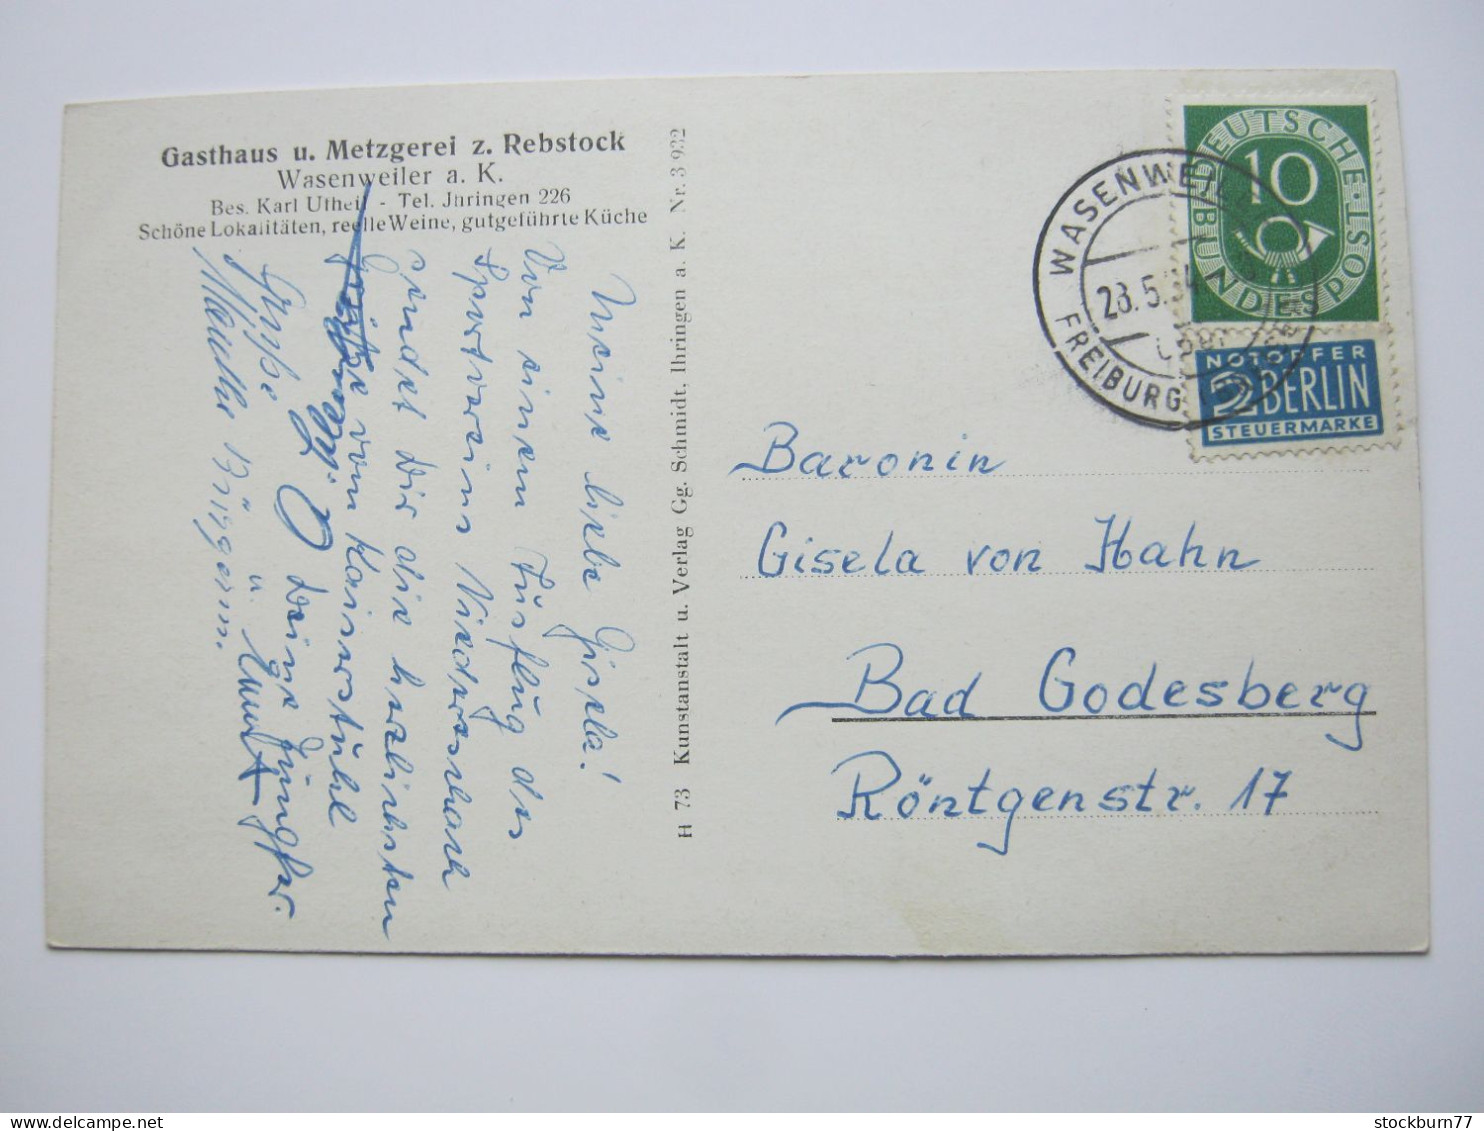 Gasthaus u. Metzgerei z. Rebstock
Wasenweiler a. K.
Bes. Karl Utheil - Tel. Jhringen 226
Schöne Lokalitäten, reelle Weine, gutgeführte Küche
Meine liebe Gisela!
Von einem Ausflug des
Sportvereins
sendet Dir die herzlichsten
Grüße vom Kaiserstuhl
Deine
Grüße u.
H 73 Kunstanstalt u. Verlag Gg. Schmidt, Ihringen a. K. Nr. 3 932
WASENWEILER
28.5.54
FREIBURG
DEUTSCHE BUNDESPOST
10
NOTOPFER
2 BERLIN
STEUERMARKE
Baronin
Gisela von Hahn
Bad Godesberg
Röntgenstr. 17
stockburn77